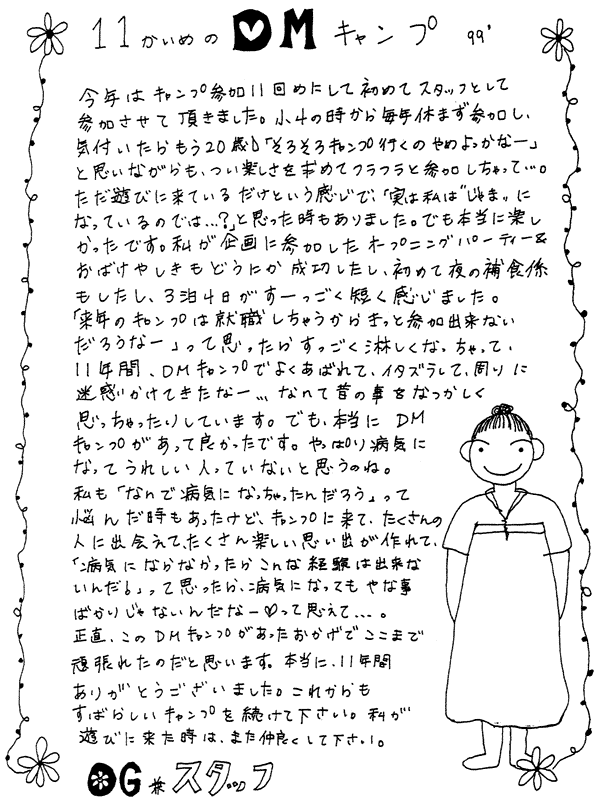 11かいめの DM キャンプ 99'
今年は キャンプ参加11回めにして初めてスタッフとして
参加させて頂きました。小4の時から毎年休まず参加し、
気付いたらもう20歳♪「そろそろキャンプ行くのやめよっかなー」
と思いながらも、つい楽しさを求めてフラフラと参加しちゃって…。
ただ遊びに来ているだけという感じで、「実は私は"じゃま"に
なっているのでは…?」と思った時もありました。でも本当に楽し
かったです。私が企画に参加したオープニングパーティー&
おばけやしきもどうにか成功したし、初めて夜の補食係
もしたし、3泊4日がすーっごく短く感じました。
「来年のキャンプは就職しちゃうからきっと参加出来ない
だろうなー」って思ったらすっごく淋しくなっちゃって、
11年間、DMキャンプでよくあばれて、イタズラして、周りに
迷惑かけてきたなー… なんて昔の事をなつかしく
思っちゃったりしています。でも、本当に DM
キャンプがあって良かったです。やっぱり病気に
なってうれしい人っていないと思うのね。
私も「なんで病気になっちゃったんだろう」って
悩んだ時もあったけど、キャンプに来て、たくさんの
人に出会えて、たくさん楽しい思い出が作れて、
「病気にならなかったらこんな経験は出来な
いんだ!」って思ったら、病気になってもやな事
ばかりじゃないんだなー♡って思えて…。
正直、このDMキャンプがあったおかげでここまで
頑張れたのだと思います。本当に、11年間
ありがとうございました。これからも
すばらしいキャンプを続けて下さい。私が
遊びに来た時は、また仲良くして下さい。
OG兼スタッフ